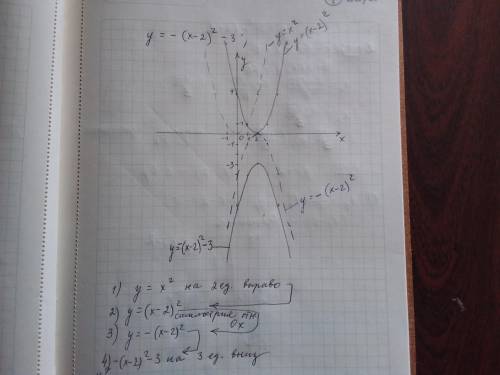 y = - (x-2)² - 3;
y = x²
y = (x-2)²
y
4
1
-1 0 2 x
-1
-3
y = -(x-2)²
y=-(x-2)²-3
1) y = x² на 2 ед. вправо
2) y = (x-2)² симметрия отн
Ox
3) y = -(x-2)²
4) -(x-2)²-3 на 3 ед. вниз